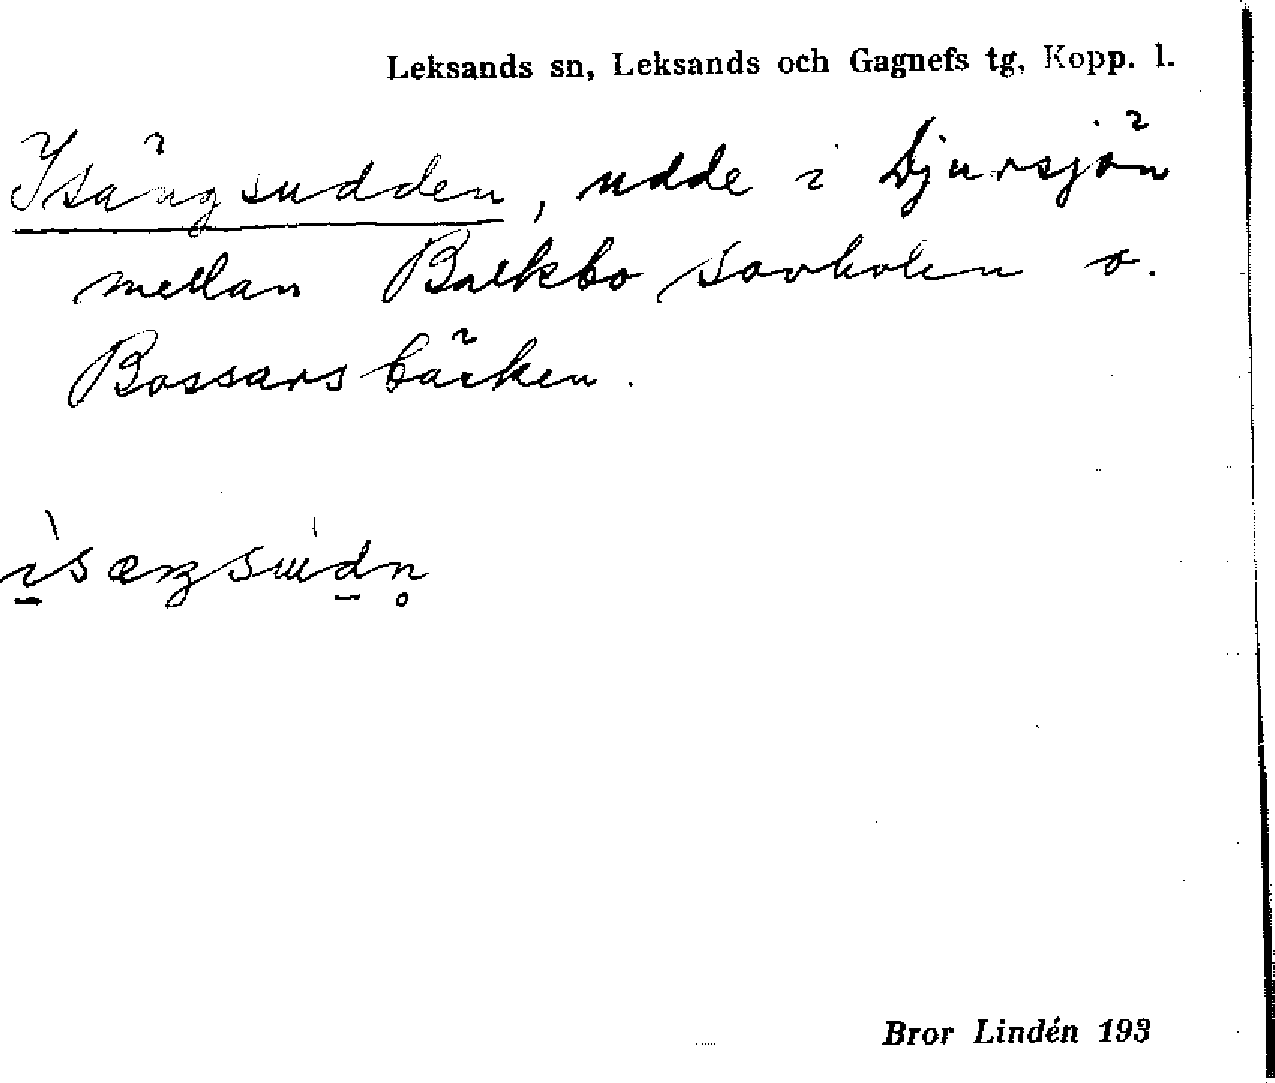 Leksands sn, Leksands och Gagnefs tg, Kopp. l.
Isängsudden, udde i Djursjön
mellan Balkbo savholen o.
Bossarsbäcken.
ìsæŋsɯdn̥
Bror Lindén 193